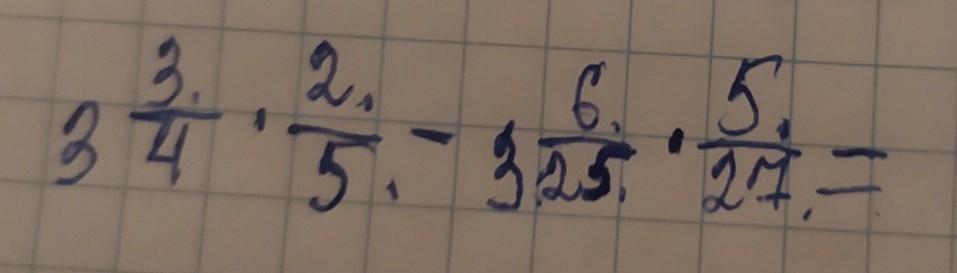 3 3/4 · 2/5 - 3 6/25 · 5/27 =